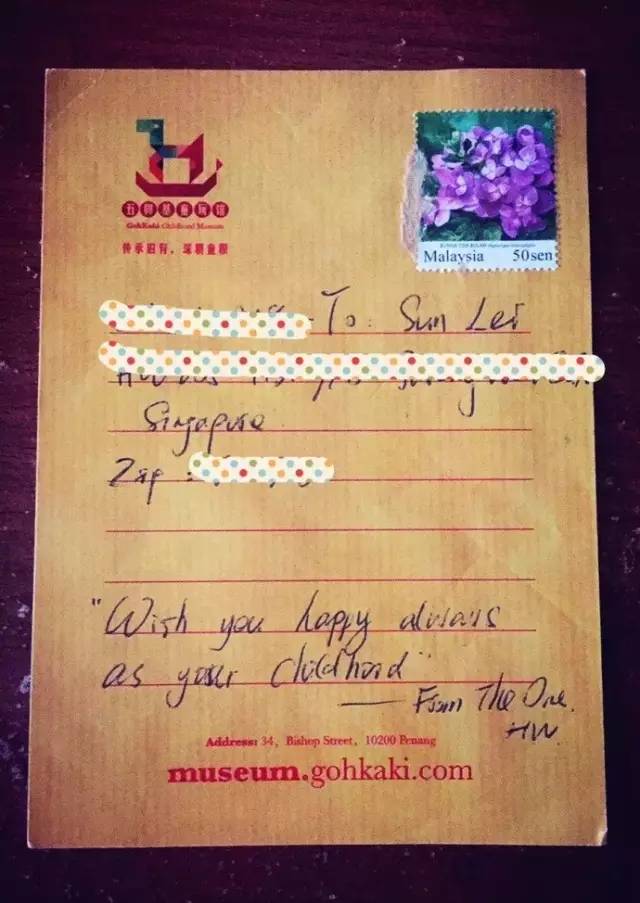 五脚基童玩馆
GohKaki Childhood Museum
传承旧有，
Malaysia 50sen
To: Sun Lei
Singapore
Zip :
"Wish you happy always
as your childhood"
— From The One.
HW.
Address: 34, Bishop Street, 10200 Penang
museum.gohkaki.com